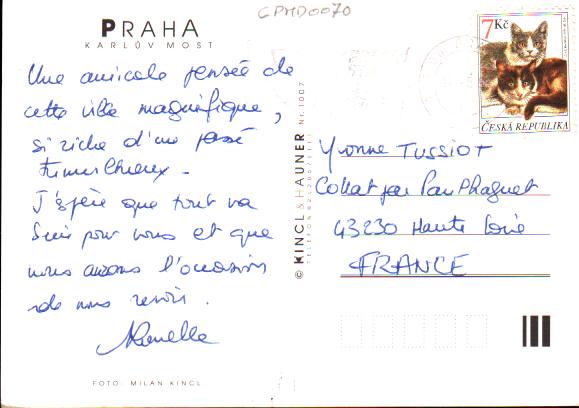 CPMD0070
PRAHA
KARLŮV MOST
Une amicale pensée de
cette ville magnifique,
si riche d'un passé
tumultueux.
J'espère que tout va
bien pour vous et que
nous aurons l'occasion
de nous revoir.
FOTO: MILAN KINCL
© KINCL & HAUNER Nr. 1007
TELEFON
7 Kč
ČESKÁ REPUBLIKA
Yvonne TUSSIOT
Collat par Paulhaguet
43230 Haute Loire
FRANCE